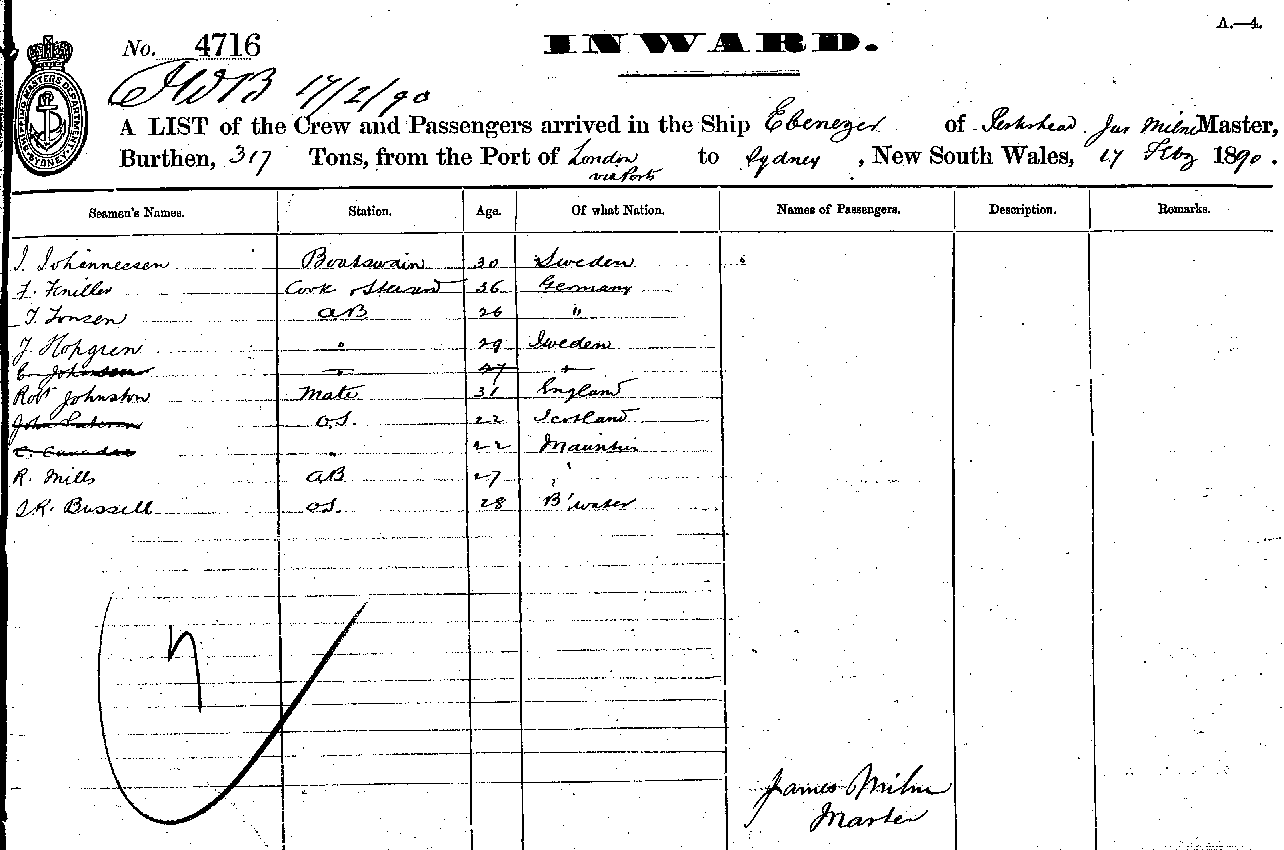 A.—4.
No. 4716
INWARD.
17/2/90
A LIST of the Crew and Passengers arrived in the Ship Ebenezer of Jas Milne Master,
Burthen, 317 Tons, from the Port of London via Ports to Sydney, New South Wales, 17 Feby 1890.
Seamen's Names. Station. Age. Of what Nation. Names of Passengers. Description. Remarks.
J. Johannessen Boatswain 30 Sweden
Cook & Steward 36 Germany
AB 26 "
J. Hopgren " 29 Sweden
C. Johnson " 27 "
Robt Johnston Mate 31 England
John O.S. 22 Scotland
C. " 22 Mauritius
R. Mills AB 27 "
R. Bussell OS. 28 B'water
James Milne
Master